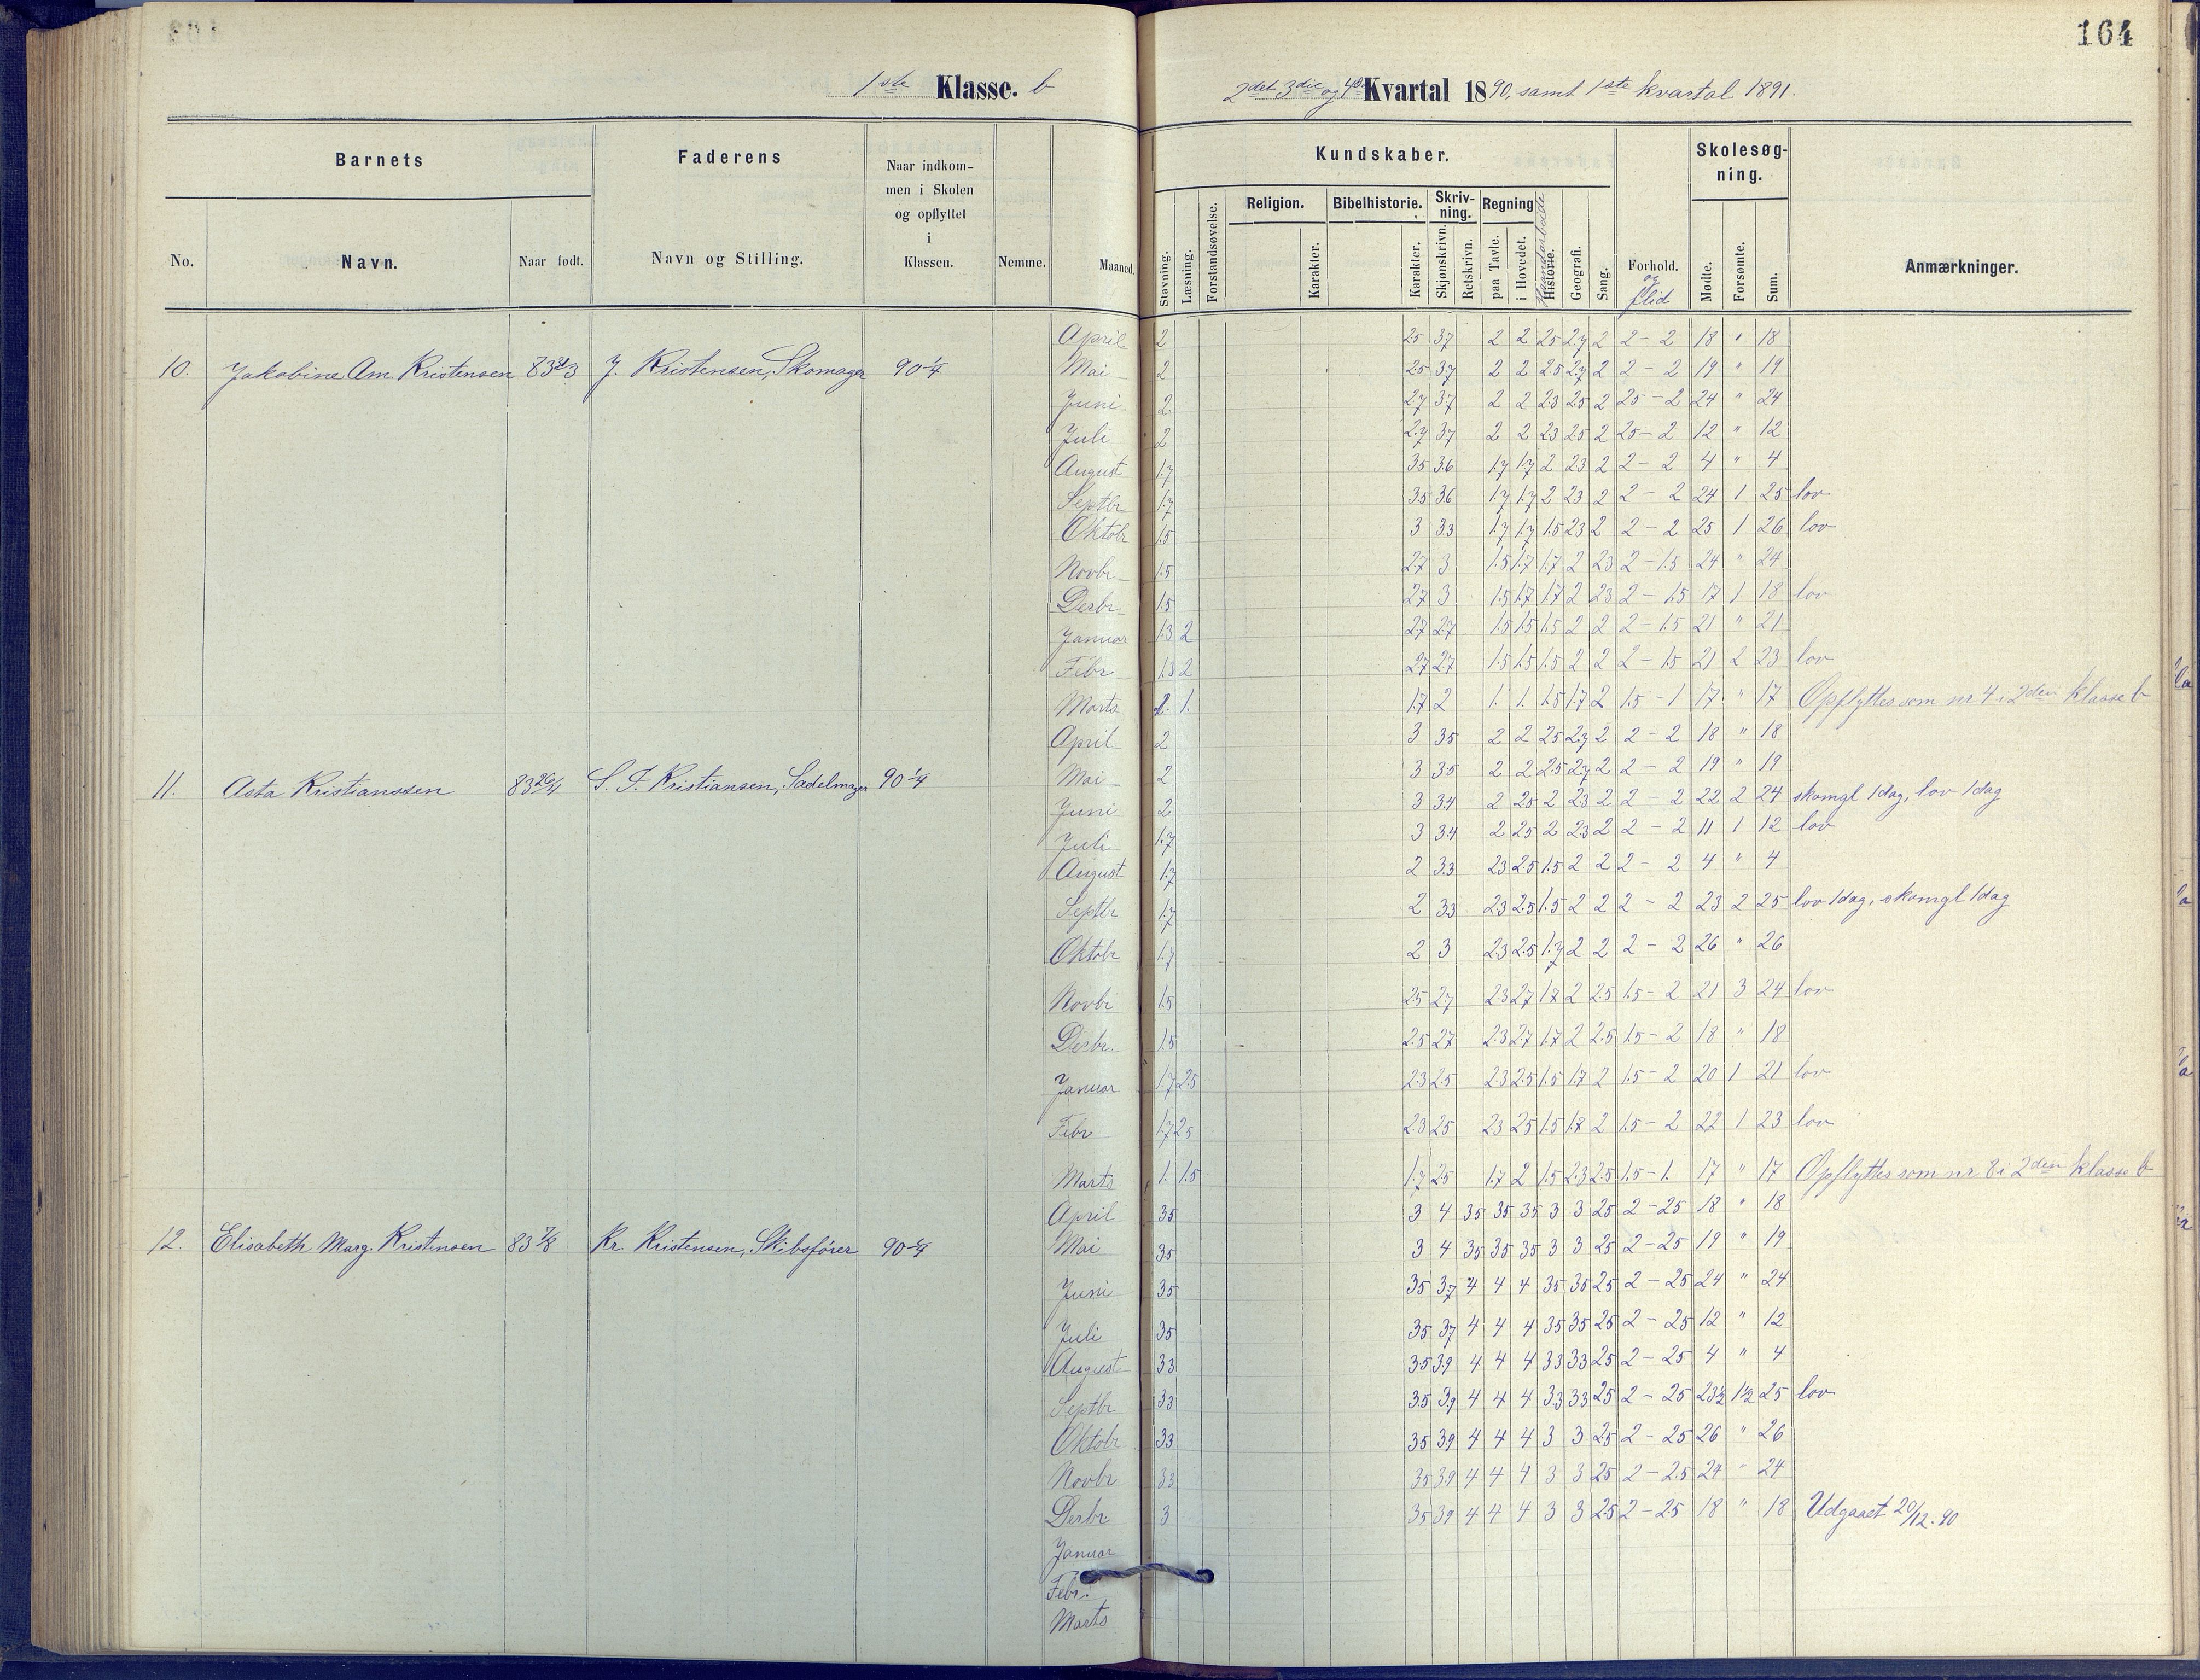 164
1ste Klasse. b
2det 3die og 4de Kvartal 1890, samt 1ste kvartal 1891.
Barnets
Faderens
Naar indkommen i Skolen og opflyttet i Klassen.
Kundskaber.
Skolesøgning.
No. Navn. Naar født. Navn og Stilling. Nemme. Maaned.
Stavning. Læsning. Forstandsøvelse. Religion. Karakter. Bibelhistorie. Karakter. Skrivning. Skjønskrivn. Retskrivn. Regning paa Tavle. i Hovedet. Haandarbeide Historie. Geografi. Sang. Forhold. og flid Mødte. Forsømte. Sum. Anmærkninger.
April 2 25 37 2 2 25 27 2 2-2 18 " 18
10. Jakobine Am. Kristensen J. Kristensen, Skomager 90 1/4 Mai 2 25 37 2 2 25 27 2 2-2 19 " 19
Juni 2 27 37 2 2 23 25 2 25-2 24 " 24
Juli 2 27 37 2 2 23 25 2 25-2 12 " 12
August 1.7 35 36 1.7 1.7 2 23 2 2-2 4 " 4
Septbr 1.7 35 36 1.7 1.7 2 23 2 2-2 24 1 25 lov
Oktobr 1.5 3 33 1.7 1.7 1.5 23 2 2-2 25 1 26 lov
Novbr 1.5 27 3 1.5 1.7 1.7 2 23 2-1.5 24 " 24
Desbr 1.5 27 3 1.5 1.7 1.7 2 23 2-1.5 17 1 18 lov
Januar 1.3 2 27 27 1.5 1.5 1.5 2 2 2-1.5 21 " 21
Febr 1.3 2 27 27 1.5 1.5 1.5 2 2 2-1.5 21 2 23 lov
Marts 1. 1. 1.7 2 1. 1. 1.5 1.7 2 1.5-1 17 " 17 Opflyttes som nr 4 i 2den klasse b
April 2 3 35 2 2 25 27 2 2-2 18 " 18
11. Asta Kristianssen 83 26/4 S. J. Kristiansen, Sadelmager 90 1/4 Mai 2 3 35 2 2 2.5 27 2 2-2 19 " 19
Juni 2 3 34 2 25 2 23 2 2-2 22 2 24 skomgl 1 dag, lov 1 dag
Juli 1.7 3 34 2 25 2 23 2 2-2 11 1 12 lov
August 1.7 2 33 23 25 1.5 2 2 2-2 4 " 4
Septbr 1.7 2 33 23 2.5 1.5 2 2 2-2 23 2 25 lov 1 dag, skomgl 1 dag
Oktobr 1.7 2 3 23 2.5 1.7 2 2 2-2 26 " 26
Novbr 1.5 25 27 23 27 1.7 2 2.5 1.5-2 21 3 24 lov
Desbr. 1.5 2.5 27 2.3 2.7 1.7 2 2.5 1.5-2 18 " 18
Januar 1.7 25 23 2.5 2.3 2.5 1.5 1.7 2 1.5-2 20 1 21 lov
Febr 1.7 25 2.3 25 23 25 1.5 1.7 2 1.5-2 22 1 23 lov
Marts 1. 1.5 1.7 25 1.7 2 1.5 2.3 2.5 1.5-1. 17 " 17 Opflyttes som nr 8 i 2den klasse b
April 35 3 4 35 35 35 3 3 25 2-25 18 " 18
12. Elisabeth Marg. Kristensen 83 7/8 Kr. Kristensen, Skibsfører 90 1/4 Mai 35 3 4 35 35 35 3 3 25 2-25 19 " 19
Juni 35 35 37 4 4 4 35 35 25 2-25 24 " 24
Juli 35 35 37 4 4 4 35 35 25 2-25 12 " 12
August 33 35 39 4 4 4 33 33 25 2-25 4 " 4
Septbr 33 35 39 4 4 4 3.3 33 25 2-25 23½ 1½ 25 lov
Oktobr 33 35 39 4 4 4 3 3 25 2-25 26 " 26
Novbr 33 35 39 4 4 4 3 3 25 2-2.5 24 " 24
Desbr 3 35 39 4 4 4 3 3 2.5 2-2.5 18 " 18 Udgaaet 20/12.90
Januar
Febr.
Marts